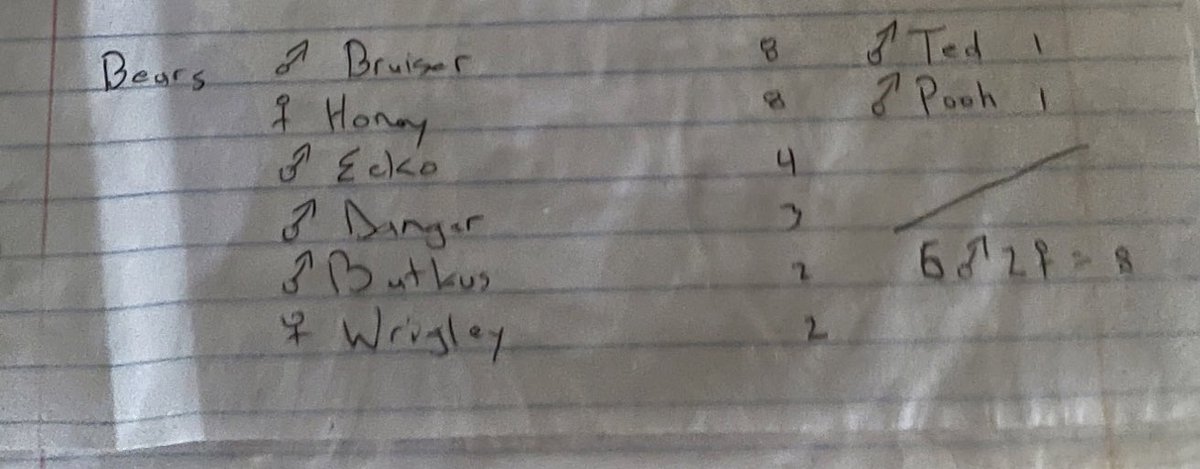 Bears ♂ Bruiser 8 ♂ Ted 1
♀ Honey 8 ♂ Pooh 1
♂ Ecko 4
♂ Danger 3
♂ Butkus 2 6♂ 2♀ = 8
♀ Wrigley 2